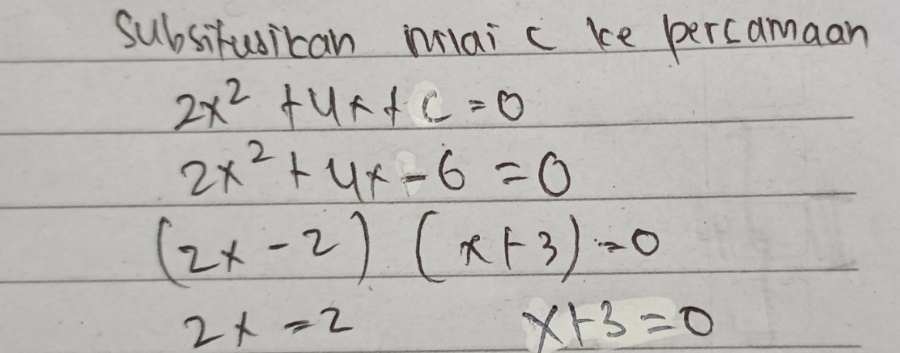 Subsitusikan nilai c ke percamaan
2x² + 4x + c = 0
2x² + 4x - 6 = 0
(2x - 2) (x + 3) = 0
2x = 2 x + 3 = 0